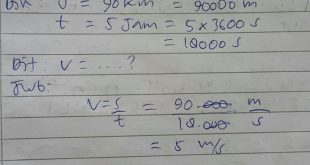 Dik : v = 90 km = 90000 m
t = 5 Jam = 5 x 3600 s
= 18000 s
Dit : v = ....?
Jwb:
V = s/t = 90.000 m / 18.000 s
= 5 m/s